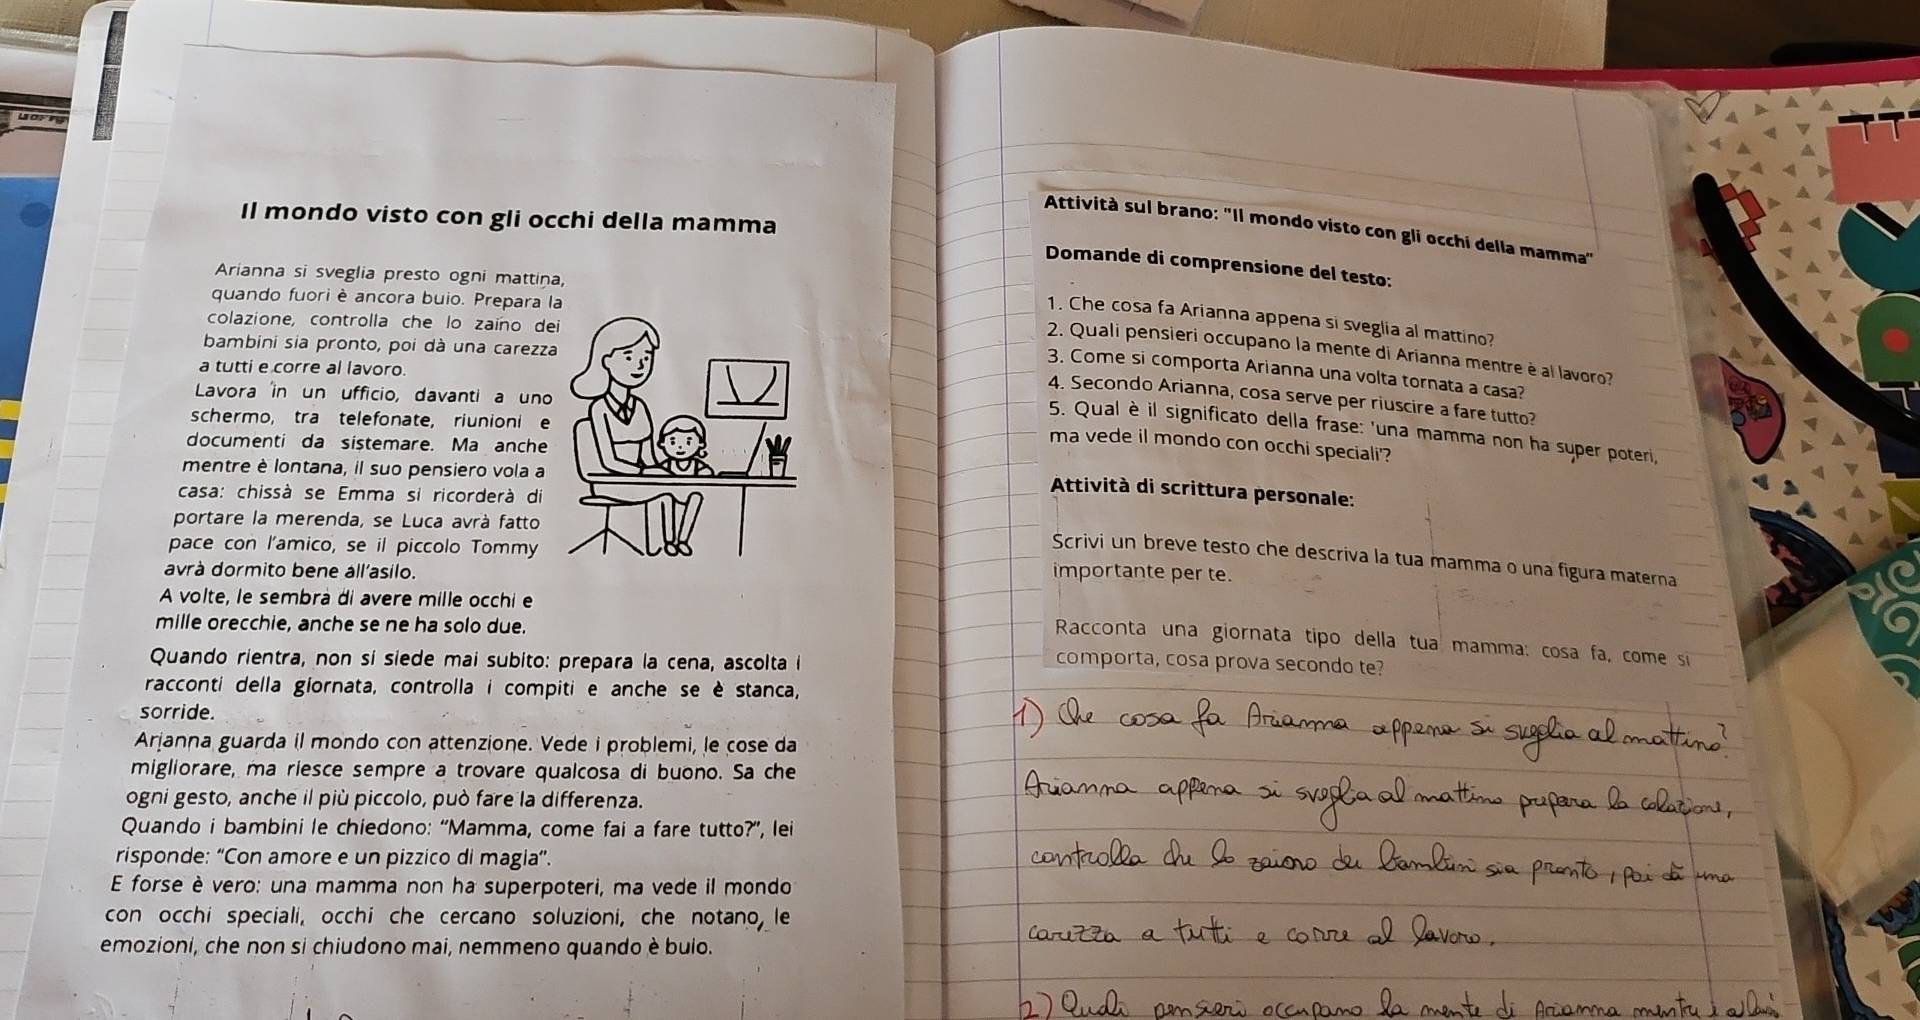 Il mondo visto con gli occhi della mamma
Arianna si sveglia presto ogni mattina,
quando fuori è ancora buio. Prepara la
colazione, controlla che lo zaino dei
bambini sia pronto, poi dà una carezza
a tutti e corre al lavoro.
Lavora in un ufficio, davanti a uno
schermo, tra telefonate, riunioni e
documenti da sistemare. Ma anche
mentre è lontana, il suo pensiero vola a
casa: chissà se Emma si ricorderà di
portare la merenda, se Luca avrà fatto
pace con l'amico, se il piccolo Tommy
avrà dormito bene all'asilo.
A volte, le sembra di avere mille occhi e
mille orecchie, anche se ne ha solo due.
Quando rientra, non si siede mai subito: prepara la cena, ascolta i
racconti della giornata, controlla i compiti e anche se è stanca,
sorride.
Arianna guarda il mondo con attenzione. Vede i problemi, le cose da
migliorare, ma riesce sempre a trovare qualcosa di buono. Sa che
ogni gesto, anche il più piccolo, può fare la differenza.
Quando i bambini le chiedono: "Mamma, come fai a fare tutto?", lei
risponde: "Con amore e un pizzico di magia".
E forse è vero: una mamma non ha superpoteri, ma vede il mondo
con occhi speciali, occhi che cercano soluzioni, che notano le
emozioni, che non si chiudono mai, nemmeno quando è buio.
Attività sul brano: "Il mondo visto con gli occhi della mamma"
Domande di comprensione del testo:
1. Che cosa fa Arianna appena si sveglia al mattino?
2. Quali pensieri occupano la mente di Arianna mentre è al lavoro?
3. Come si comporta Arianna una volta tornata a casa?
4. Secondo Arianna, cosa serve per riuscire a fare tutto?
5. Qual è il significato della frase: 'una mamma non ha super poteri,
ma vede il mondo con occhi speciali'?
Attività di scrittura personale:
Scrivi un breve testo che descriva la tua mamma o una figura materna
importante per te.
Racconta una giornata tipo della tua mamma: cosa fa, come si
comporta, cosa prova secondo te?
1) Che cosa fa Arianna appena si sveglia al mattino?
Arianna appena si sveglia al mattino prepara la colazione,
controlla che lo zaiono dei bambini sia pronto, poi dà una
carezza a tutti e corre al lavoro.
2) Quali pensieri occupano la mente di Arianna mentre è al